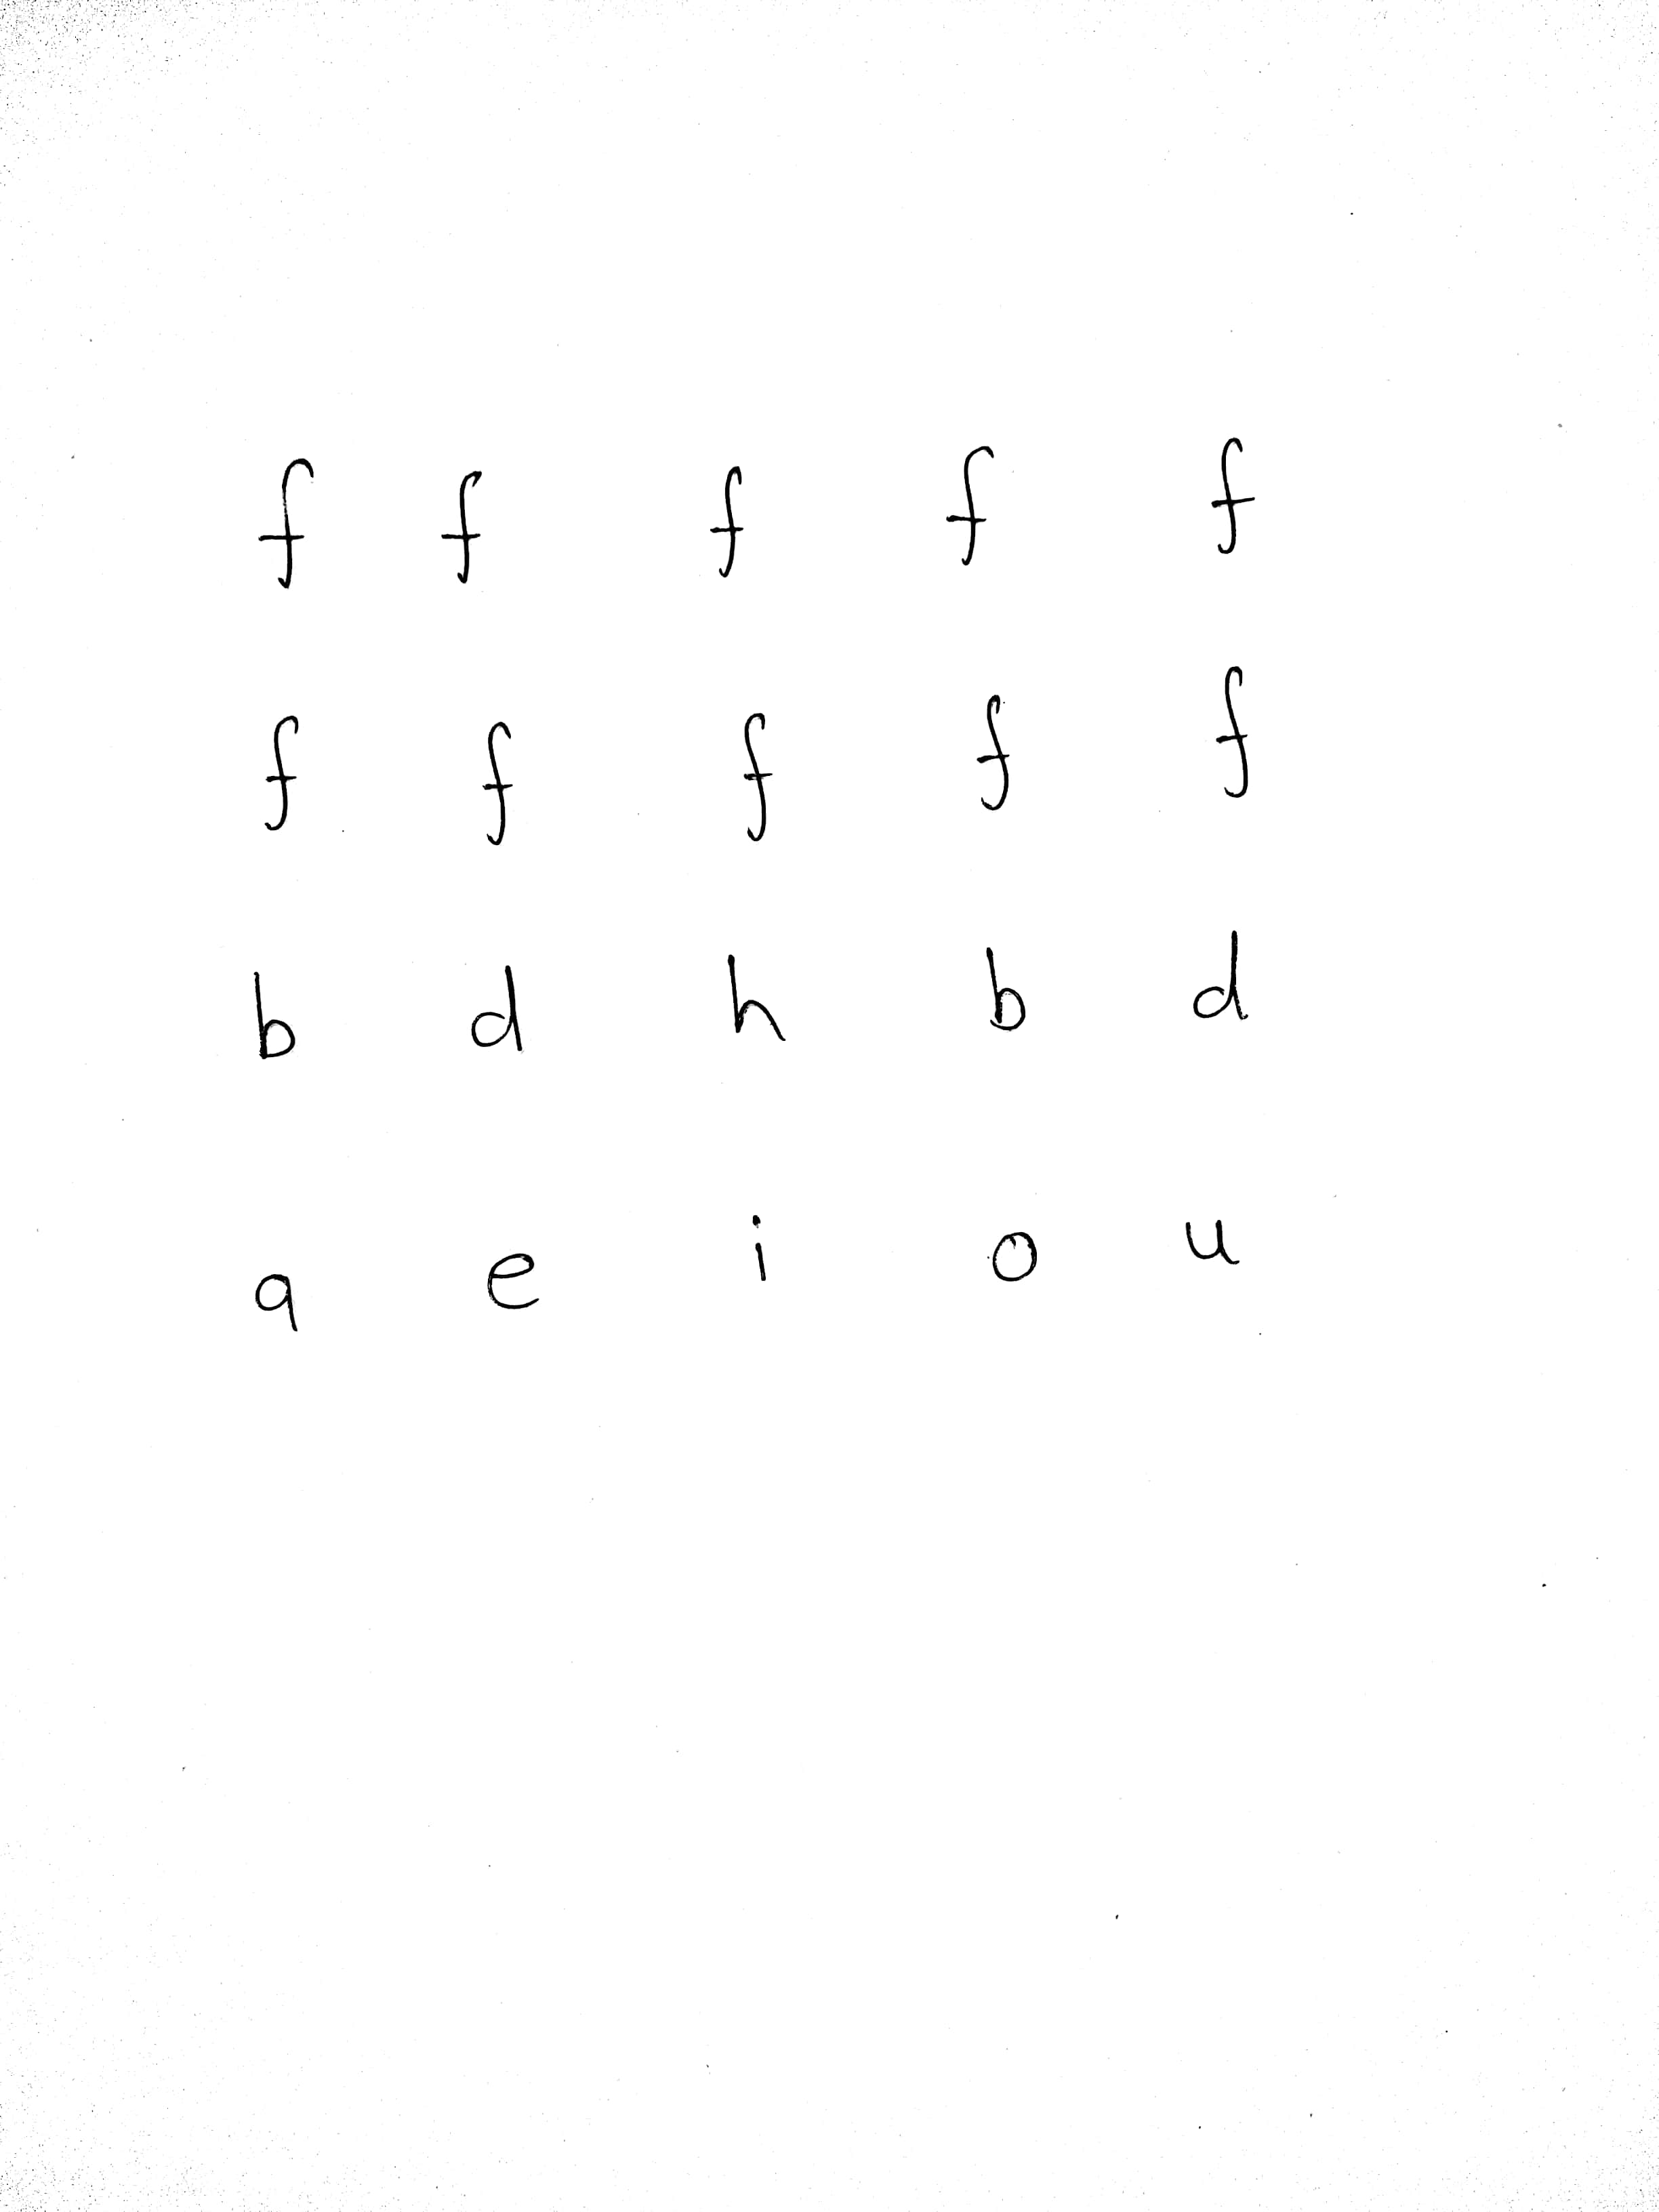 f f f f f
f f f f f
b d h b d
a e i o u